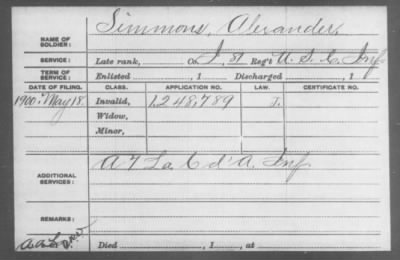 NAME OF SOLDIER: Simmons, Alexander.
SERVICE: Late rank, Co. I, 81 Reg't U. S. C. Inf.
TERM OF SERVICE: Enlisted , 1 Discharged , 1
DATE OF FILING. CLASS. APPLICATION NO. LAW. CERTIFICATE NO.
1900, May 18. Invalid, 1,248,789 J.
Widow,
Minor,
ADDITIONAL SERVICES: A 7 La C d'A. Inf.
REMARKS:
Died , 1 , at